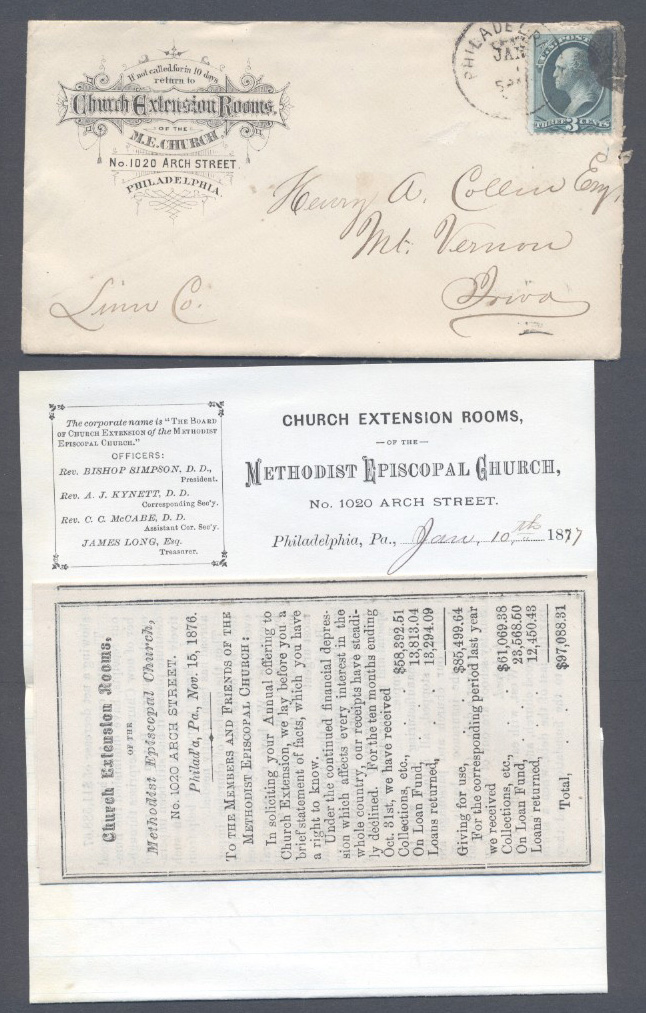 If not called for in 10 days
return to
Church Extension Rooms.
OF THE
M.E. CHURCH,
No. 1020 ARCH STREET.
PHILADELPHIA
PHILADELP
JAN
U.S. POST
THREE 3 CENTS
Henry A. Collin Esq.
Mt. Vernon
Iowa
Linn Co.
The corporate name is "THE BOARD
OF CHURCH EXTENSION of the METHODIST
EPISCOPAL CHURCH."
OFFICERS:
Rev. BISHOP SIMPSON, D. D.,
President.
Rev. A. J. KYNETT, D. D.
Corresponding Sec'y.
Rev. C. C. McCABE, D. D.
Assistant Cor. Sec'y.
JAMES LONG, Esq.
Treasurer.
CHURCH EXTENSION ROOMS,
—OF THE—
METHODIST EPISCOPAL CHURCH,
No. 1020 ARCH STREET.
Philadelphia, Pa., Jan. 10th 1877
Church Extension Rooms,
OF THE
Methodist Episcopal Church,
No. 1020 ARCH STREET.
Philad'a, Pa., Nov. 15, 1876.
TO THE MEMBERS AND FRIENDS OF THE
METHODIST EPISCOPAL CHURCH:
In soliciting your Annual offering to
Church Extension, we lay before you a
brief statement of facts, which you have
a right to know.
Under the continued financial depres-
sion which affects every interest in the
whole country, our receipts have steadi-
ly declined. For the ten months ending
Oct. 31st, we have received
Collections, etc., . . $58,392.51
On Loan Fund, . . 13,813.04
Loans returned, . . 13,294.09
$85,499.64
Giving for use, . .
For the corresponding period last year
we received
Collections, etc., . . $61,069.38
On Loan Fund, . . 23,568.50
Loans returned, . . 12,450.43
Total, . . . $97,088.31